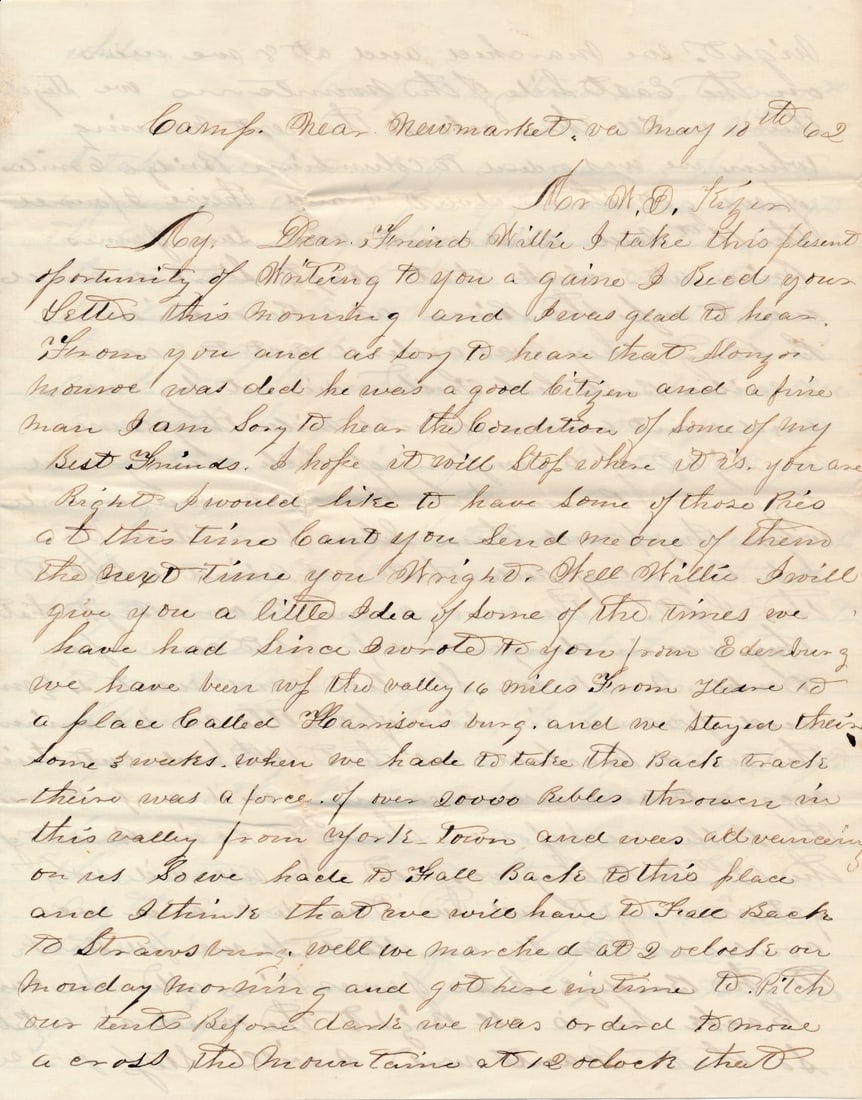 Camp. Near Newmarket. va May 10th 62
Mr W. D. Kizer
My. Dear. Friend Willie I take this present
oportunity of Writeing to you a gaine I Recd your
Letter this morning and I was glad to hear.
From you and as sory to heare that
Monroe was ded he was a good Citizen and a fine
man I am Sory to hear the Condition of some of my
Best Friends. I hope it will Stop where it is. you are
Right I would like to have some of those Pies
at this time Cant you Send me one of them
the next time you Wright. Well Willie I will
give you a little Idea of some of the times we
have had Since I wrote to you from Edenburg
we have been up the valley 16 miles From Here to
a place Called Harrisons burg. and we stayed their
some 3 weeks. when we hade to take the Back track
theire was a force. of over 20000 Rebles throwen in
this valley from York-town and was advanceing
on us So we hade to Fall Back to this place
and I think that we will have to Fall Back
to Strawsburg. well we marched at 2 oclock on
Monday morning and got here in time to. Pitch
our tents Before dark we was orderd to move
a cross the Mountaine at 12 oclock that